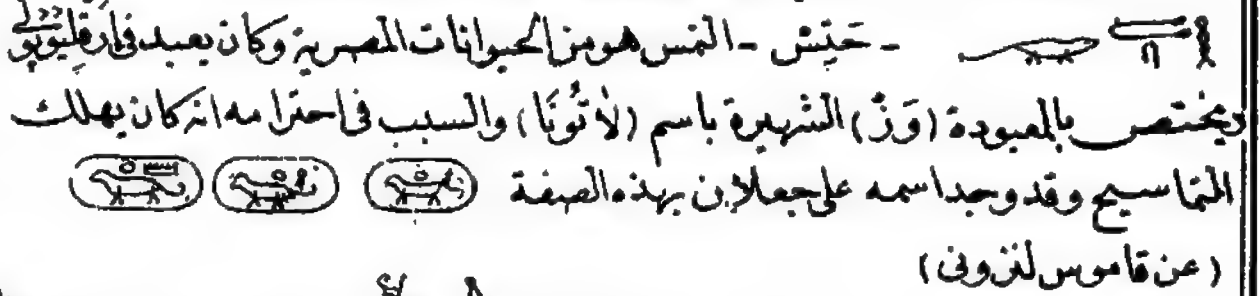 - حَتِش - النمس هو من الحيوانات المصرية وكان يعبد في ارقليوبولي
ويختص بالمعبودة (وَزْ) الشهيرة باسم (لاَتُونَا) والسبب في احترامه انه كان يهلك
التماسيح وقد وجد اسمه على جعلان بهذه الصفة
(عن قاموس لنزوني)